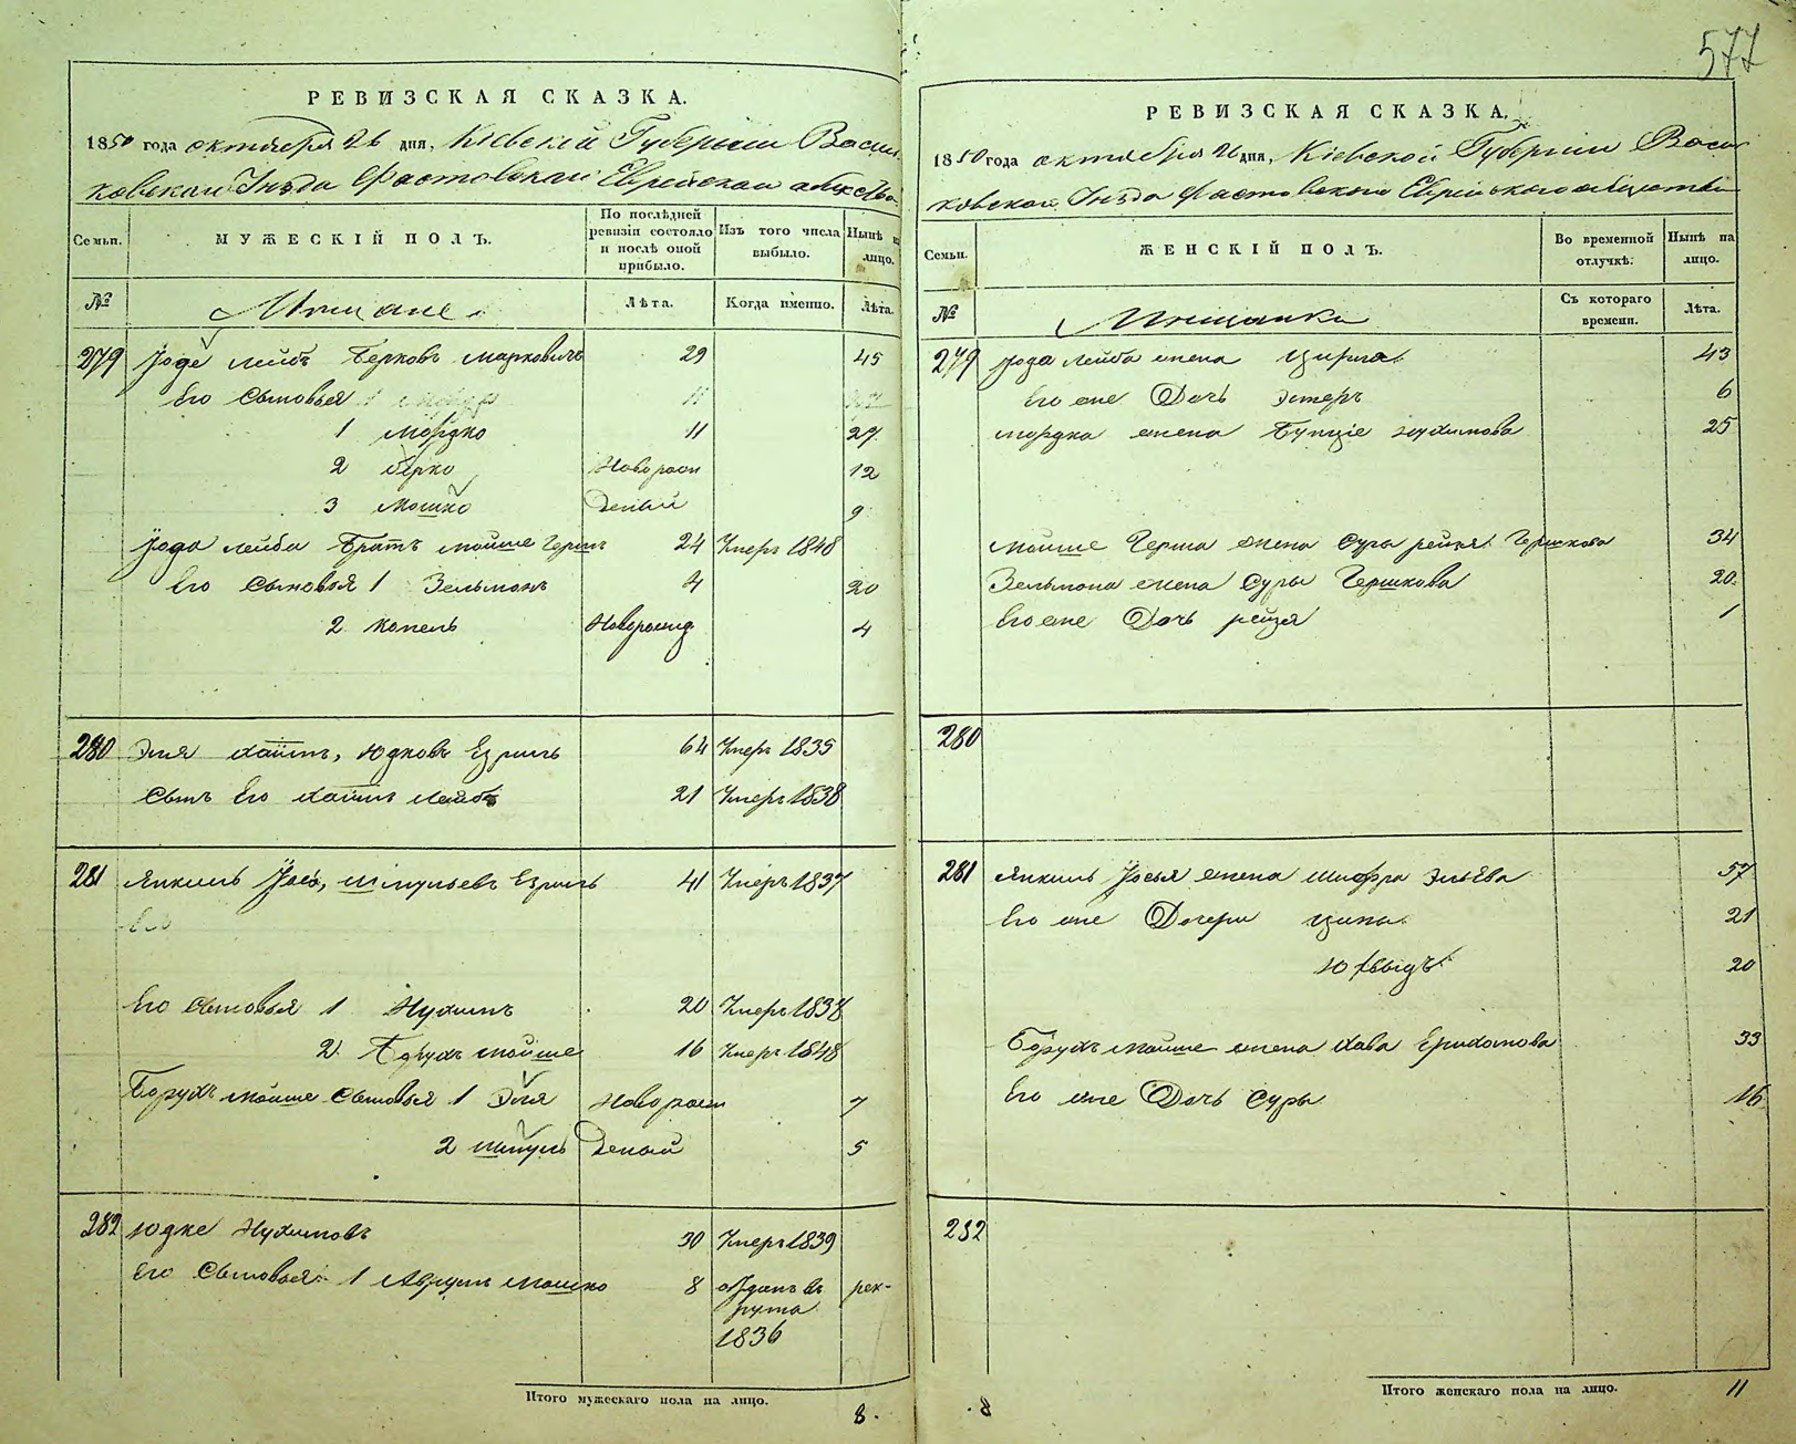 577
РЕВИЗСКАЯ СКАЗКА.
1850 года октября 26 дня, Кіевской Губерніи Васил
ковскаго Уезда Фастовскаго Еврейскаго общества
Семьи. МУЖЕСКІЙ ПОЛЪ. По послѣдней ревизіи состояло и послѣ оной прибыло. Изъ того числа выбыло. Нынѣ на лицо.
№ Мещане Лѣта. Когда именно. Лѣта.
279 Иоде Лейбъ Берковъ Марковичъ 29 45
Его Сыновья 1 11
1 Мордко 11 27
2 Берко Новорож 12
3 Мошко денный 9
Иода Лейба Братъ Мойше Гершъ 24 Умеръ 1848
Его Сыновья 1 Зельманъ 4 20
2 Копель Новорожд 4
280 Эля Хаимъ, Юдковъ Езринъ 64 Умеръ 1835
Сынъ Его Хаимъ Лейбъ 21 Умеръ 1838
281 Янкель Иось, Шмульевъ Езринъ 41 Умеръ 1837
Его
Его Сыновья 1 Нухимъ 20 Умеръ 1838
2 Борухъ Мойше 16 Умеръ 1848
Борухъ Мойше Сыновья 1 Эля Новорож 7
2 Шмуль денный 5
282 Юдке Нухимовъ 30 Умеръ 1839
Его Сыновья 1 Аврумъ Мошко 8 отданъ въ рек-
рута
1836
Итого мужескаго пола на лицо. 8.
РЕВИЗСКАЯ СКАЗКА.
1850 года октября 26 дня, Кіевской Губерніи Васил
ковскаго Уезда Фастовскаго Еврейскаго общества
Семьи. ЖЕНСКІЙ ПОЛЪ. Во временной отлучкѣ. Нынѣ на лицо.
№ Мещанки Съ котораго времени. Лѣта.
279 Иода Лейба жена Цирля 43
Его же Дочь Эстеръ 6
Мордка жена Бунціе Нухимова 25
Мойше Герша жена Сура Рейзя Гершкова 34
Зельмана жена Суры Гершкова 20
Его же Дочь Рейзя 1
280
281 Янкель Иосья жена Шифра Эльева 57
Его же Дочери Ципа 21
20
Борухъ Мойше жена Хава 33
Его же Дочь Суры 16
282
Итого женскаго пола на лицо. 11
8